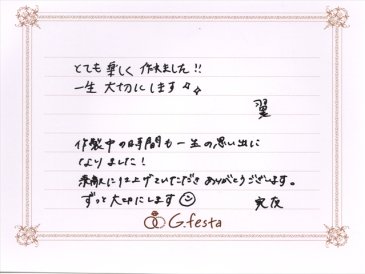 とても楽しく作れました!!
一生大切にします✧✧
翼
作製中の時間も一生の思い出に
なりました!
素敵に仕上げていただきありがとうございます。
ずっと大切にします☺
実夜
G.festa